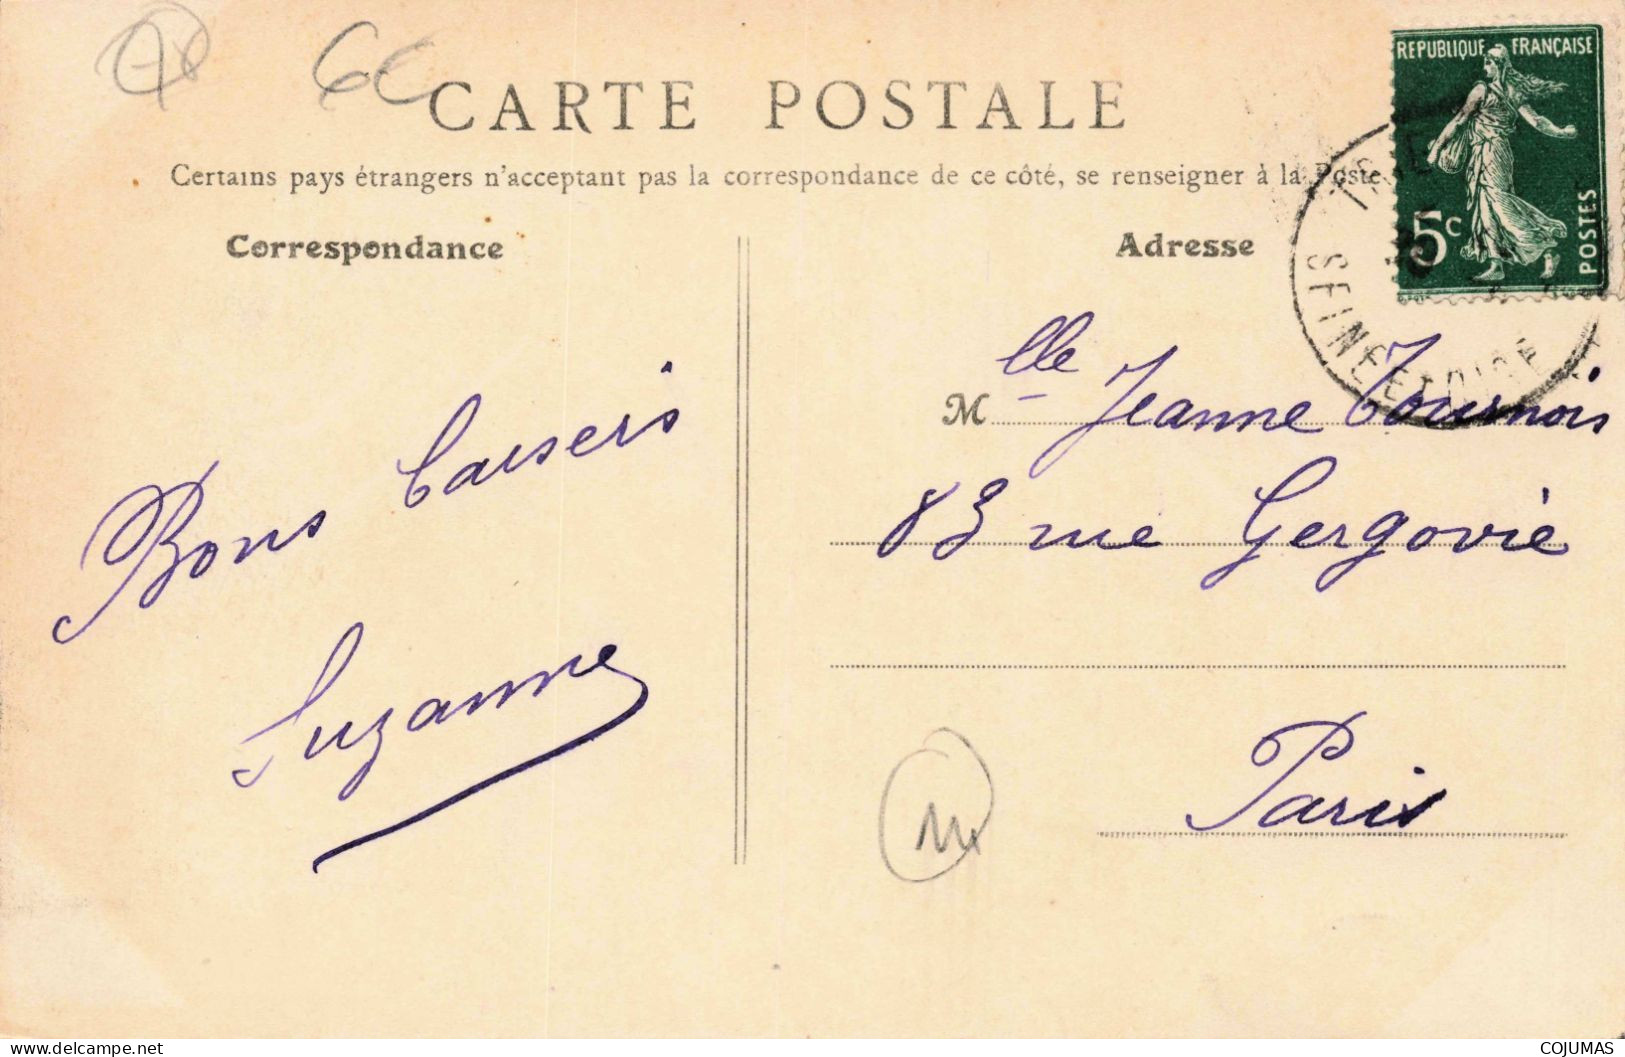 6c
CARTE POSTALE
Certains pays étrangers n'acceptent pas la correspondance de ce côté, se renseigner à la Poste
REPUBLIQUE FRANÇAISE
5c
POSTES
SEINE ET OISE
Correspondance
Adresse
Mlle Jeanne Tournois
83 rue Gergovie
Paris
Bons baisers
Suzanne
www.delcampe.net
COJUMAS